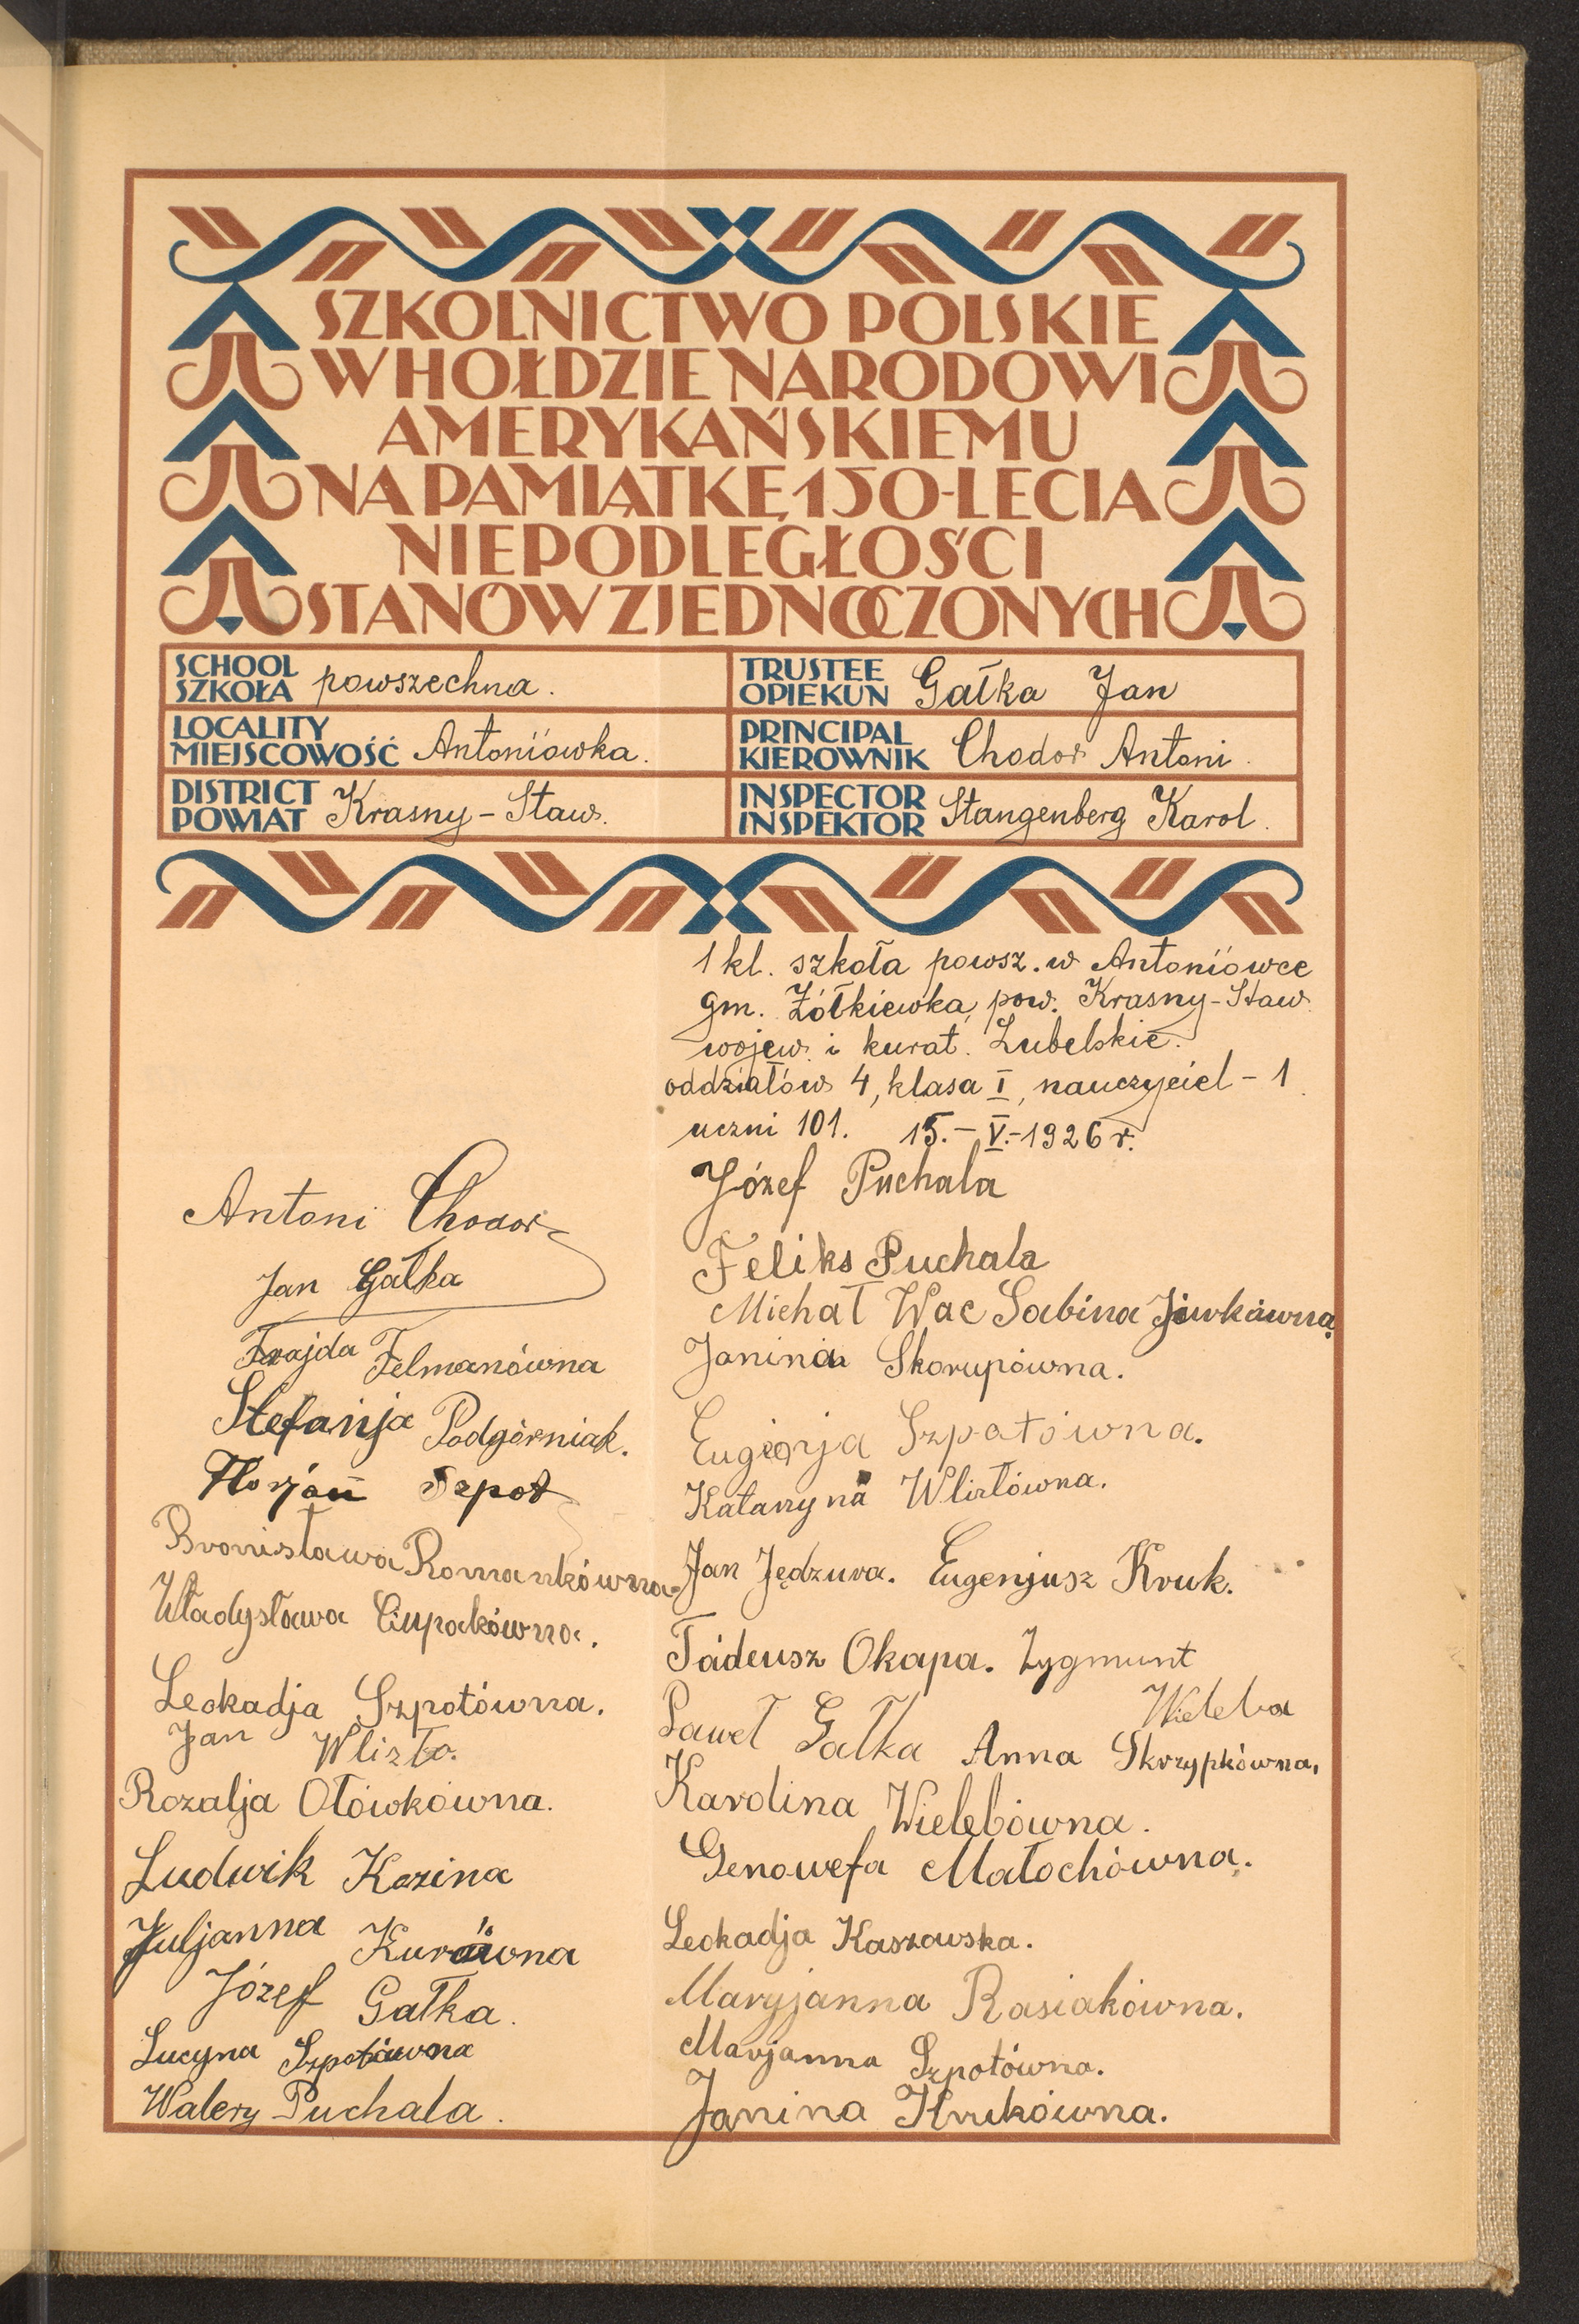 SZKOLNICTWO POLSKIE
W HOŁDZIE NARODOWI
AMERYKAŃSKIEMU
NA PAMIĄTKĘ 150-LECIA
NIEPODLEGŁOŚCI
STANÓW ZJEDNOCZONYCH
SCHOOL
SZKOŁA powszechna.
TRUSTEE
OPIEKUN Gałka Jan
LOCALITY
MIEJSCOWOŚĆ Antoniówka.
PRINCIPAL
KIEROWNIK Chodor Antoni.
DISTRICT
POWIAT Krasny-Staw.
INSPECTOR
INSPEKTOR Stangenberg Karol.
1 kl. szkoła powsz. w Antoniówce
gm. Żółkiewka, pow. Krasny-Staw
wojew. i kurat. Lubelskie.
oddziałów 4, klasa I, nauczyciel - 1.
uczni 101. 15.-V.-1926 r.
Antoni Chodor
Jan Gałka
Frajda Felmanówna
Stefanja Podgórniak.
Florjan Szpot
Bronisława Romankówna.
Władysława Ciupakówna.
Leokadja Szpotówna.
Jan Wlizło.
Rozalja Ołówkówna.
Ludwik Kozina
Juljanna Kurówna
Józef Gałka.
Lucyna Szpotówna
Walery Puchala.
Józef Puchala
Feliks Puchala
Michał Wac Sabina Jiwkówna
Janina Skorupówna.
Eugienja Szpotówna.
Katarzyna Wlizłówna.
Jan Jędzura. Eugenjusz Kruk.
Tadeusz Okapa. Zygmunt
Wieleba
Paweł Gałka Anna Skrzypkówna.
Karolina Wielebówna.
Genowefa Małochówna.
Leokadja Kaszowska.
Maryjanna Rasiakówna.
Marjanna Szpotówna.
Janina Krukówna.